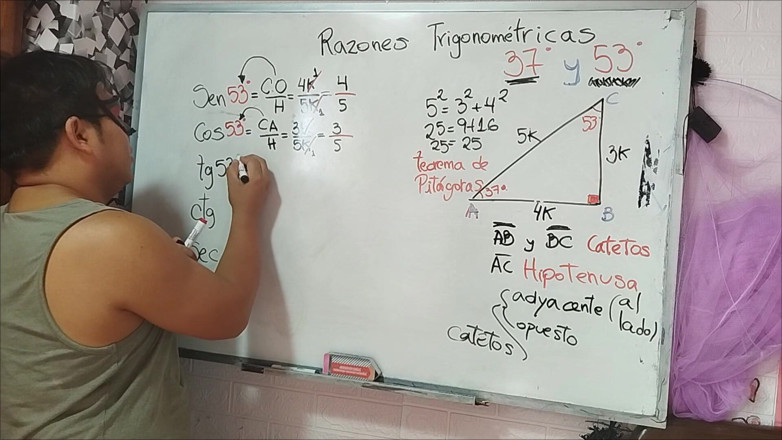 Razones Trigonométricas
37° y 53°
Sen 53° = CO/H = 4K/5K = 4/5
Cos 53° = CA/H = 3K/5K = 3/5
tg 53
ctg
Sec
5² = 3² + 4²
25 = 9 + 16
25 = 25
teorema de
Pitágoras
A
B
C
37°
53°
5K
3K
4K
AB y BC Catetos
AC Hipotenusa
catetos { adyacente (al lado)
opuesto